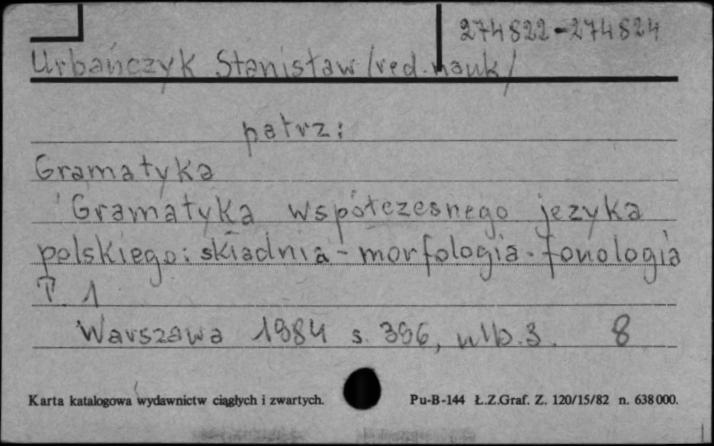 274822-274824
Urbańczyk Stanisław /red. nauk/
patrz:
Gramatyka
Gramatyka współczesnego języka
polskiego: składnia - morfologia - fonologia
T. 1
Warszawa 1984 s. 396, nlb. 3. 8
Karta katalogowa wydawnictw ciągłych i zwartych.
Pu-B-144 Ł.Z.Graf. Z. 120/15/82 n. 638000.